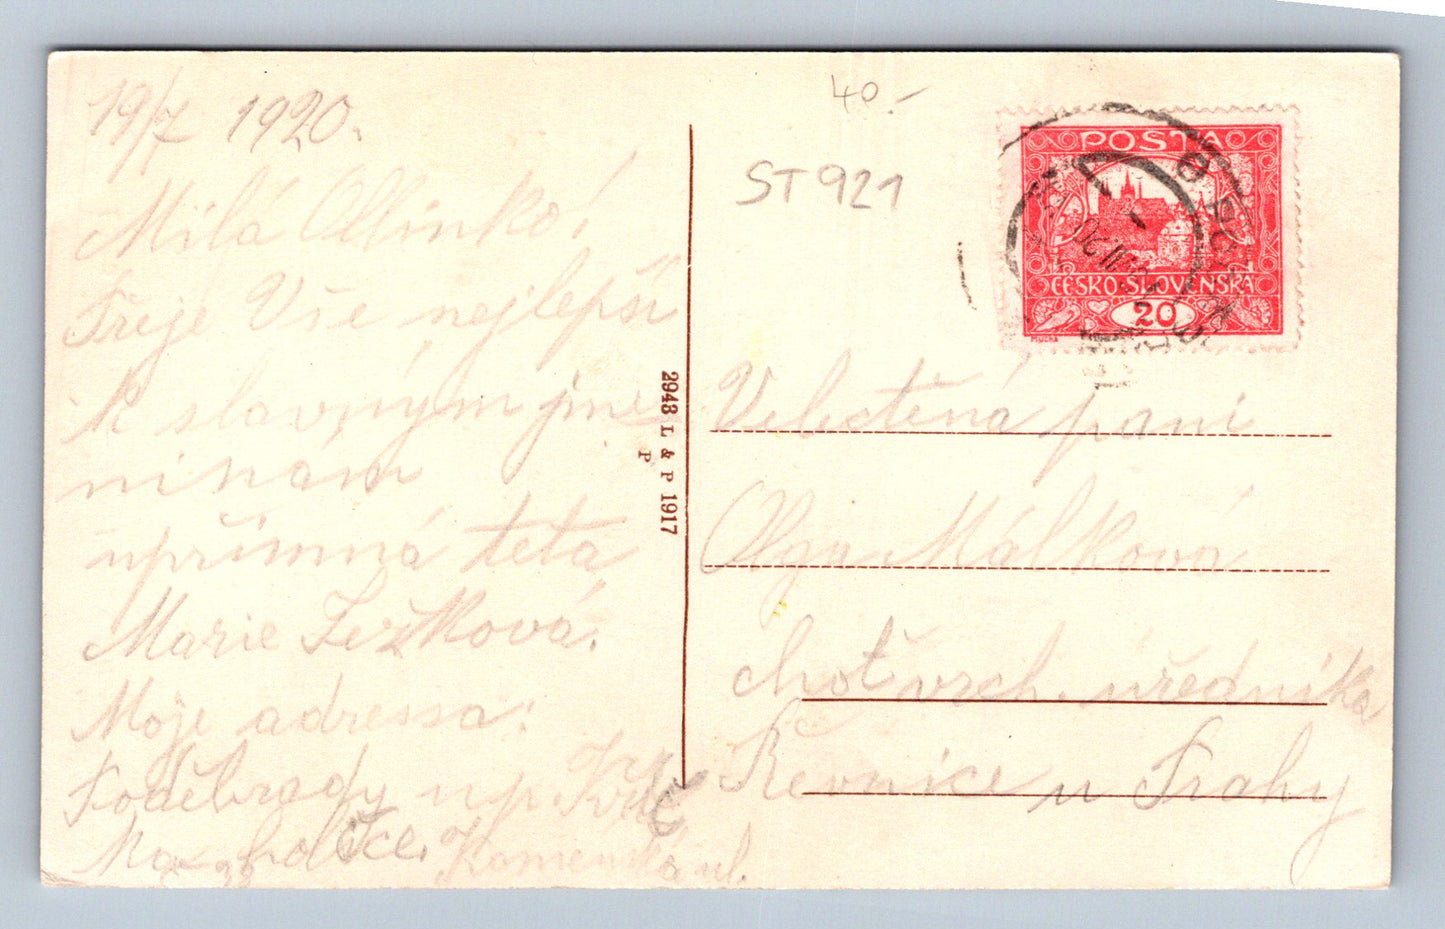 19/7 1920.
Milá Olinko!
Přeje Vše nejlepší
k slavným jme
ninám
upřímná teta
Marie Ježková.
Moje adressa:
Poděbrady
Komenská ul.
40.-
ST 921
POSTA
ČESKO-SLOVENSKÁ
20
MUCHA
2943 L & P 1917
P
Velectěná paní
Olga Málková
choť vrch. úředníka
Řevnice u Prahy